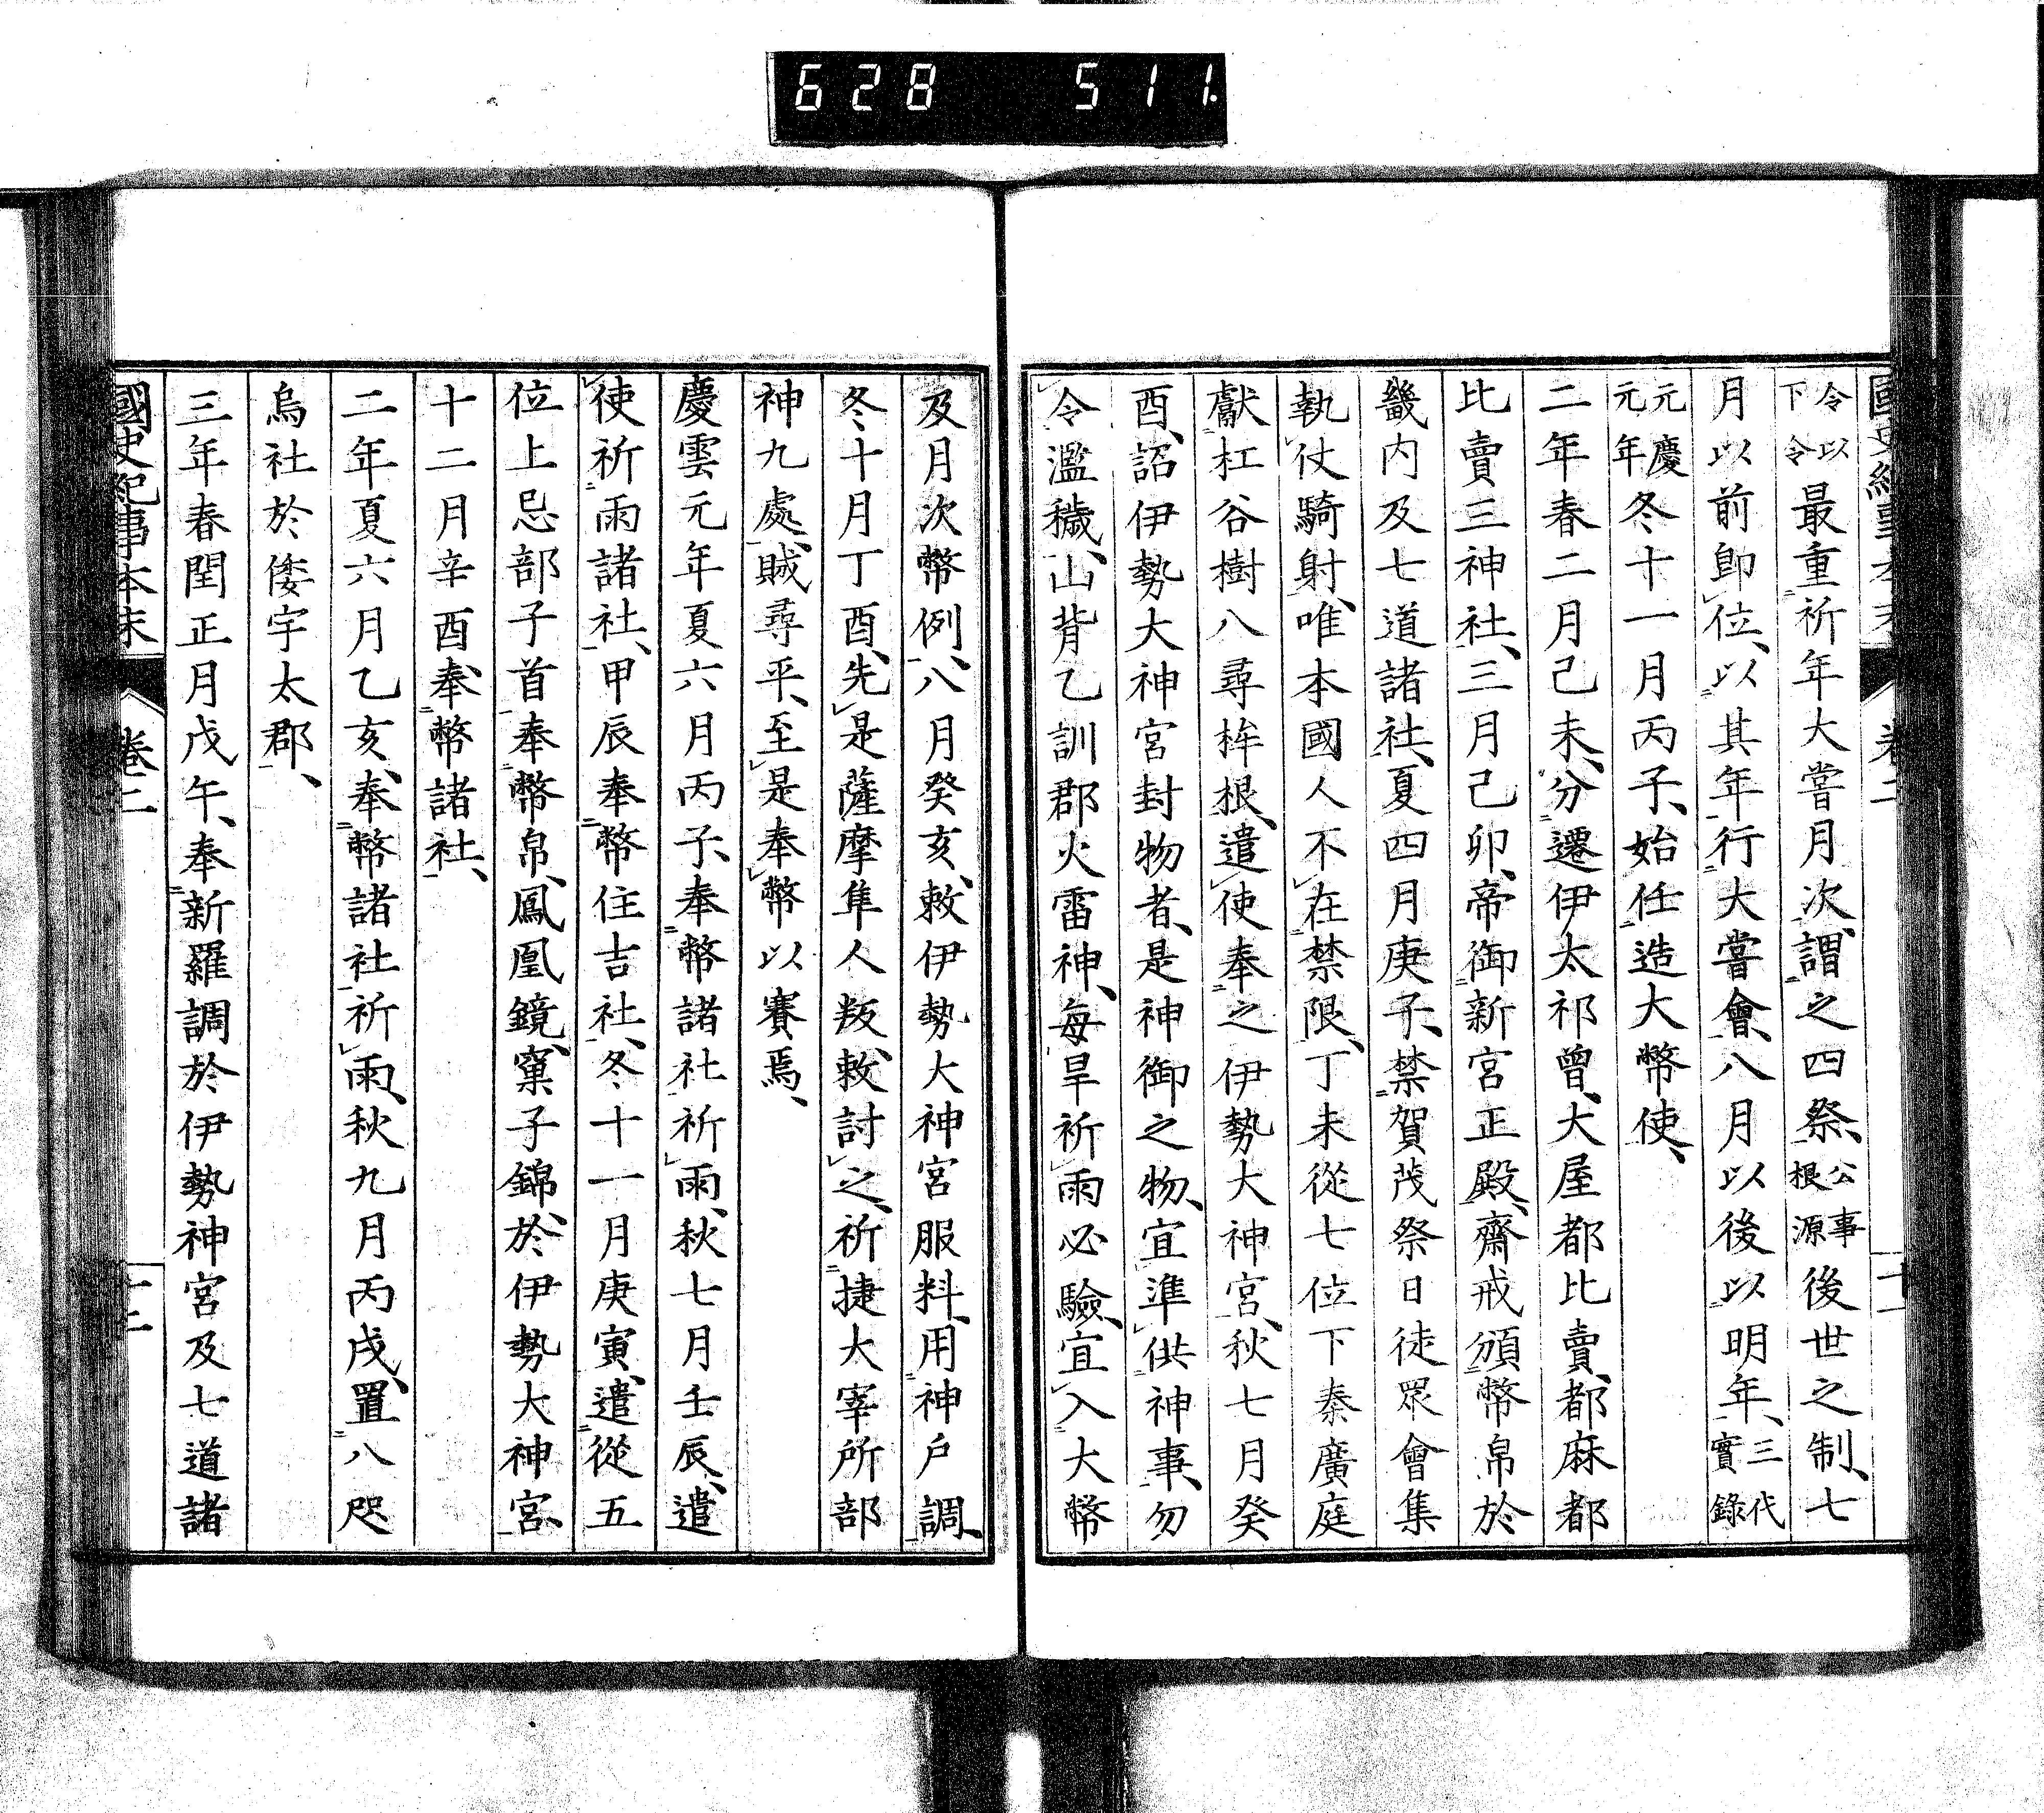 628 511.
國史紀事本末 卷二 十一
令以下令最重祈年大嘗月次、謂之四祭、公事根源後世之制、七
月以前卽位、以其年行大嘗會、八月以後以明年、三代實錄
元慶元年冬十一月丙子、始任造大幣使、
二年春二月己未、分遷伊太祁曾、大屋都比賣、都麻都
比賣三神社、三月己卯、帝御新宮正殿、齋戒頒幣帛於
畿内及七道諸社、夏四月庚子、禁賀茂祭日徒眾會集
執仗騎射、唯本國人不在禁限、丁未從七位下秦廣庭
獻杠谷樹八尋桙根、遣使奉之伊勢大神宮、秋七月癸
酉、詔伊勢大神宮封物者、是神御之物、宜準供神事、勿
令濫穢、山背乙訓郡火雷神、每旱祈雨必驗、宜入大幣
及月次幣例、八月癸亥、敕伊勢大神宮服料、用神戶調、
冬十月丁酉、先是薩摩隼人叛、敕討之、祈捷大宰所部
神九處、賊尋平、至是奉幣以賽焉、
慶雲元年夏六月丙子、奉幣諸社祈雨、秋七月壬辰、遣
使祈雨諸社、甲辰奉幣住吉社、冬十一月庚寅、遣從五
位上忌部子首奉幣帛、鳳凰鏡、窠子錦、於伊勢大神宮、
十二月辛酉、奉幣諸社、
二年夏六月乙亥、奉幣諸社祈雨、秋九月丙戌、置八咫
烏社於倭宇太郡、
三年春閏正月戊午、奉新羅調於伊勢神宮及七道諸
國史紀事本末 卷二 十二